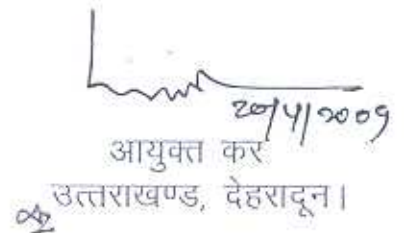 20/4/2009
आयुक्त कर
उत्तराखण्ड, देहरादून।